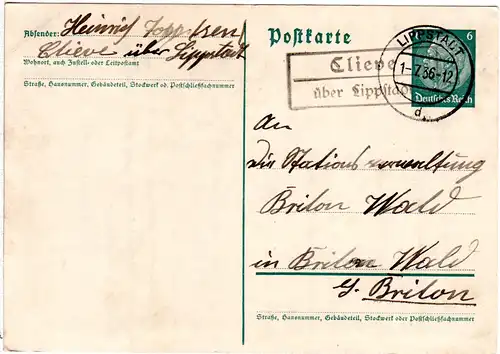 Absender: Heinrich
Clieve über Lippstadt
Wohnort, auch Zustell- oder Leitpostamt
Straße, Hausnummer, Gebäudeteil, Stockwerk od. Postschließfachnummer
Postkarte
6
Deutsches Reich
LIPPSTADT
1-7.36-12
d
Clieve
über Lippstadt
An
die Stationsverwaltung
Brilon Wald
in Brilon Wald
Brilon
Straße, Hausnummer, Gebäudeteil, Stockwerk oder Postschließfachnummer